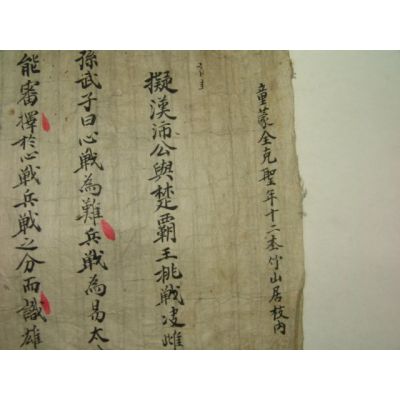 童蒙全克聖年十二本竹山居校內
擬漢沛公與楚霸王挑戰決雌
孫武子曰心戰為難兵戰為易太
能審擇於心戰兵戰之分而識雄